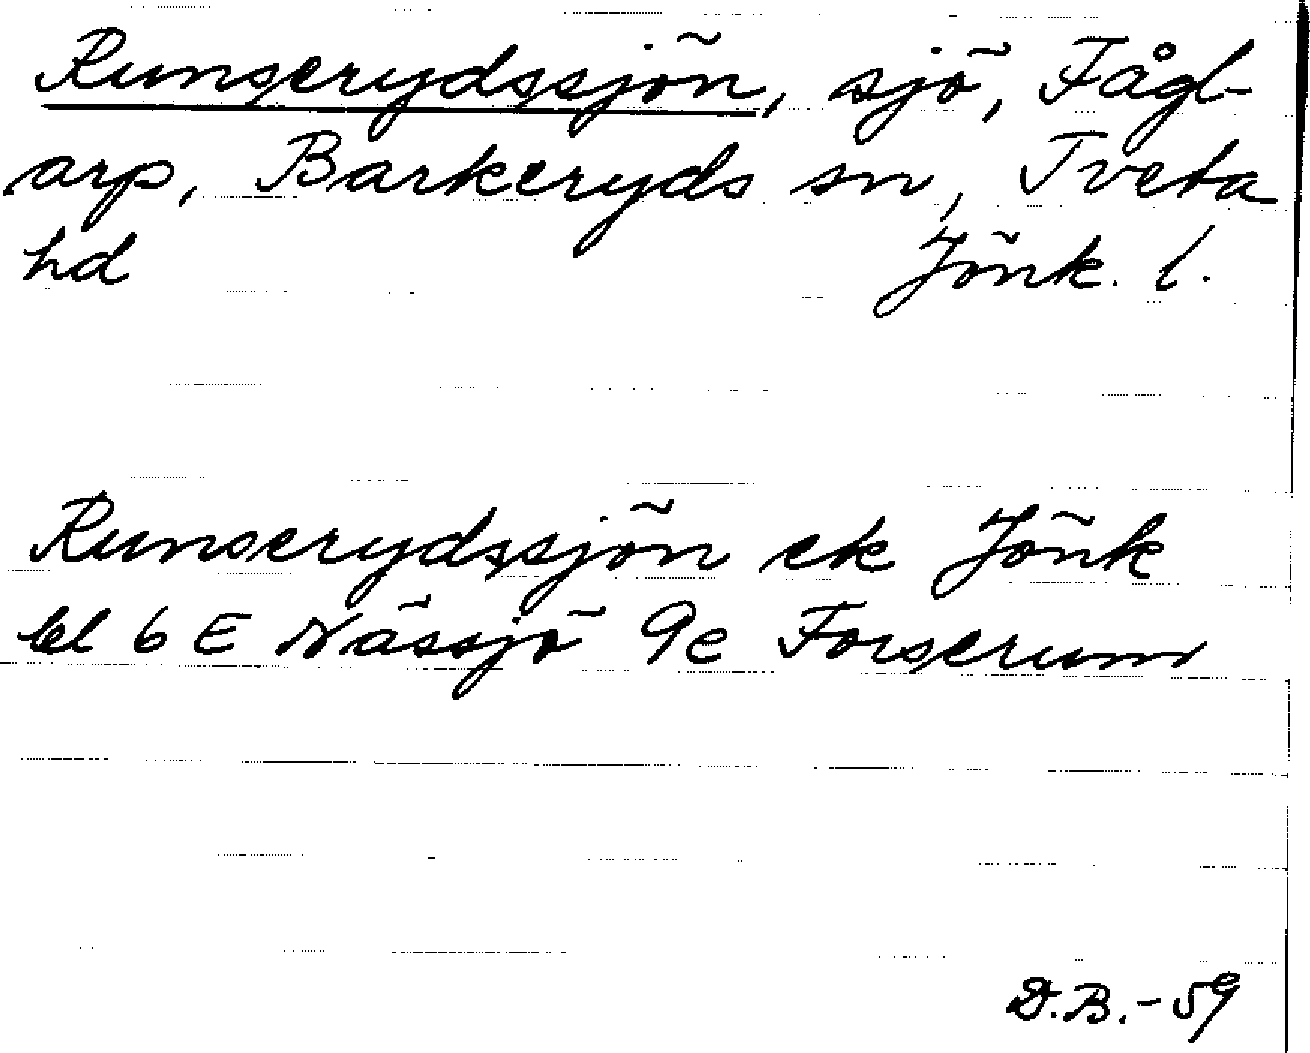 Runserydssjön, sjö, Fågl-
arp, Barkeryds sn, Tveta
hd Jönk. l.
Runserydssjön ek Jönk
bl 6 E Nässjö 9e Forserum
D.B.-59